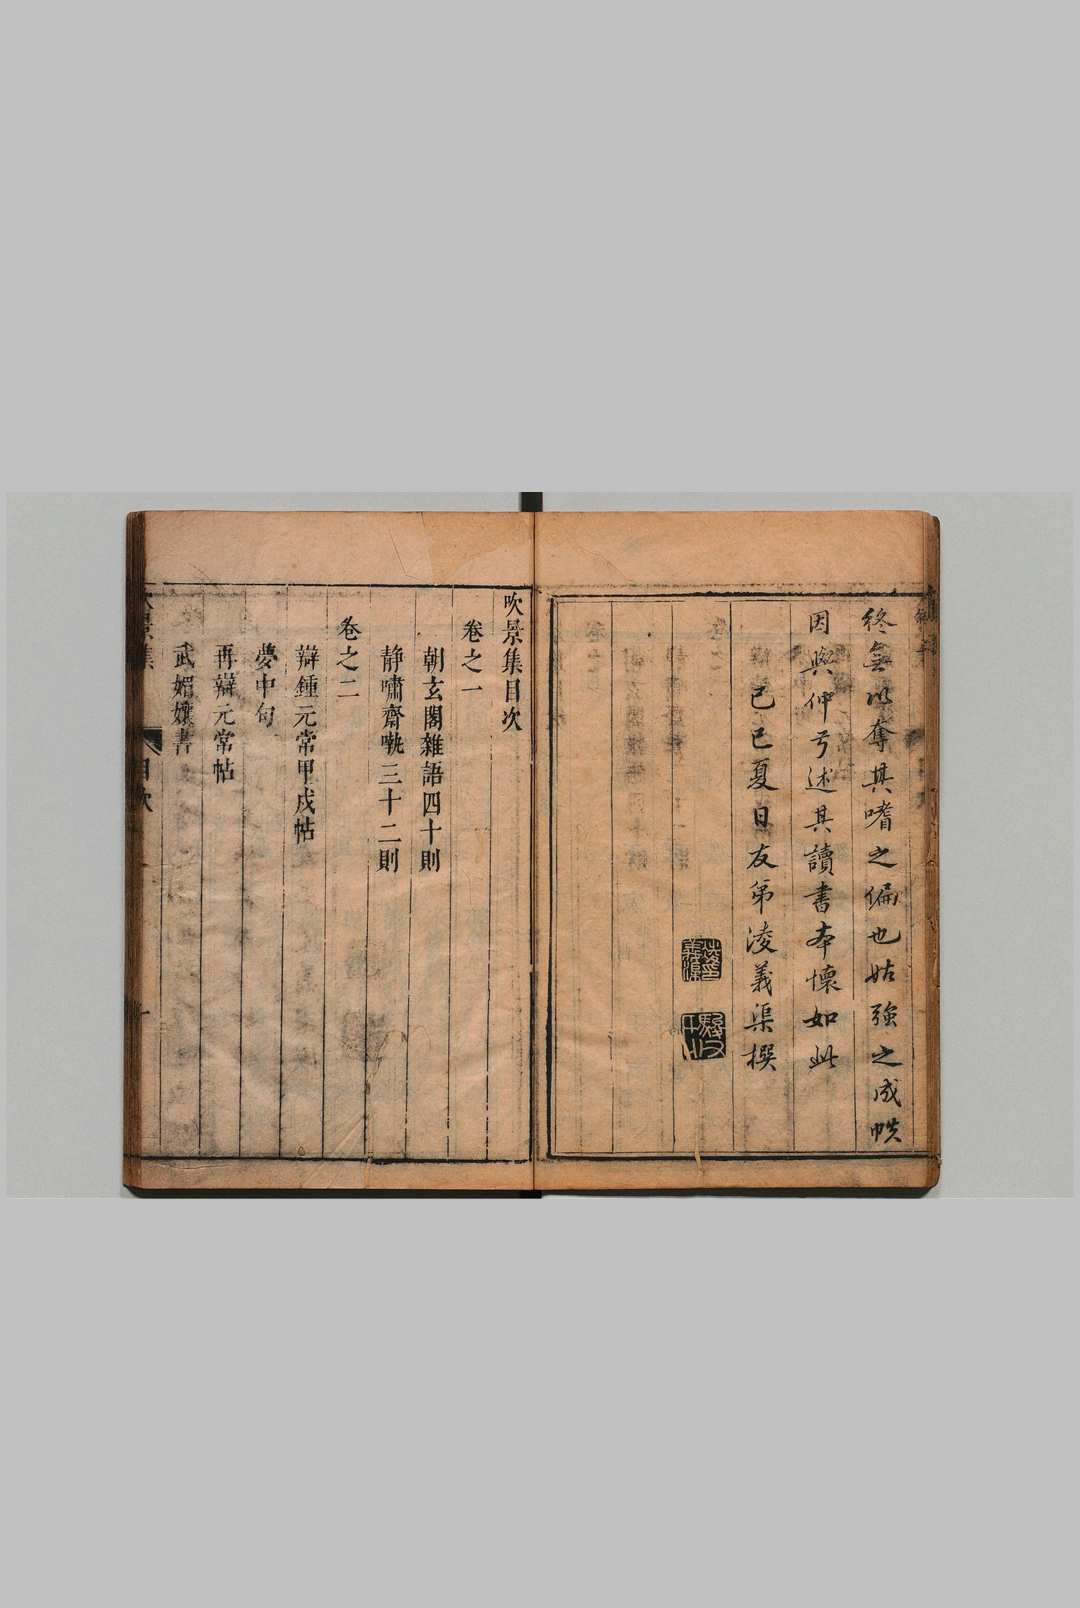 終無以奪其嗜之偏也姑強之成帙
因與仲兮述其讀書本懷如此
己巳夏日友弟淩義渠撰
吹景集目次
卷之一
朝玄閣雜語四十則
靜嘯齋㗘三十二則
卷之二
辯鍾元常甲戍帖
夢中句
再辯元常帖
武媚孃書
吹景集
目次
一